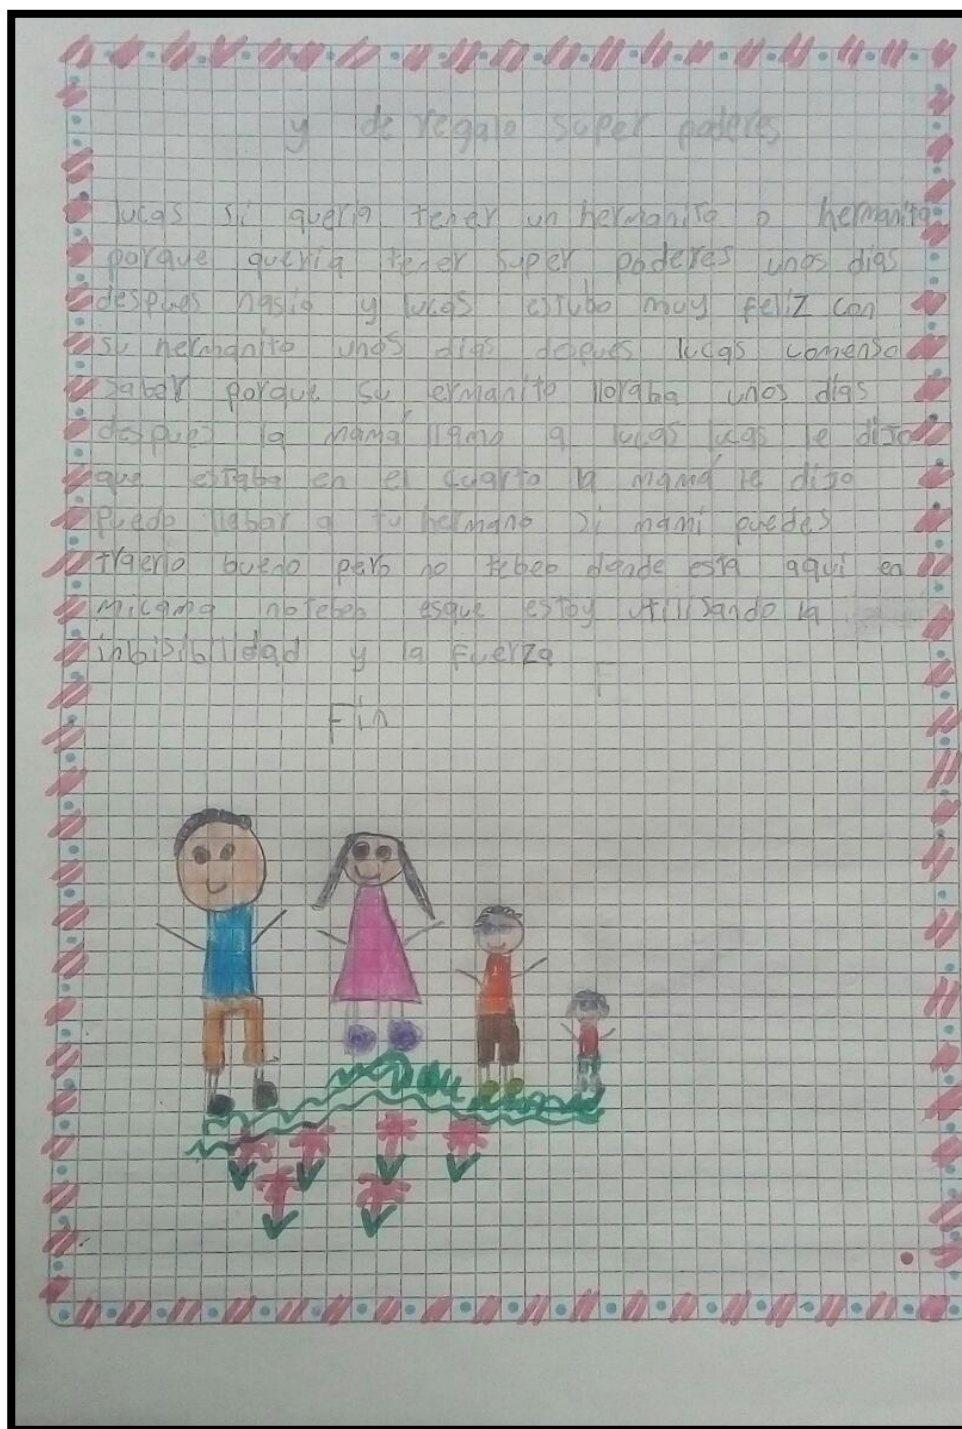 y de regalo super poderes
lucas si queria tener un hermanito o hermanita
porque queria tener super poderes unos dias
despues nasio y lucas estubo muy feliz con
su hermanito unos dias depues lucas comenso
saber porque su ermanito lloraba unos dias
despues la mamá llamo a lucas lucas le dijo
que estaba en el cuarto la mamá le dijo
puedo llebar a tu hermano si mami puedes
traerlo bueno pero no tebeo donde esta aqui en
micama notebeo esque estoy utilisando la
inbisibilidad y la fuerza
Fin